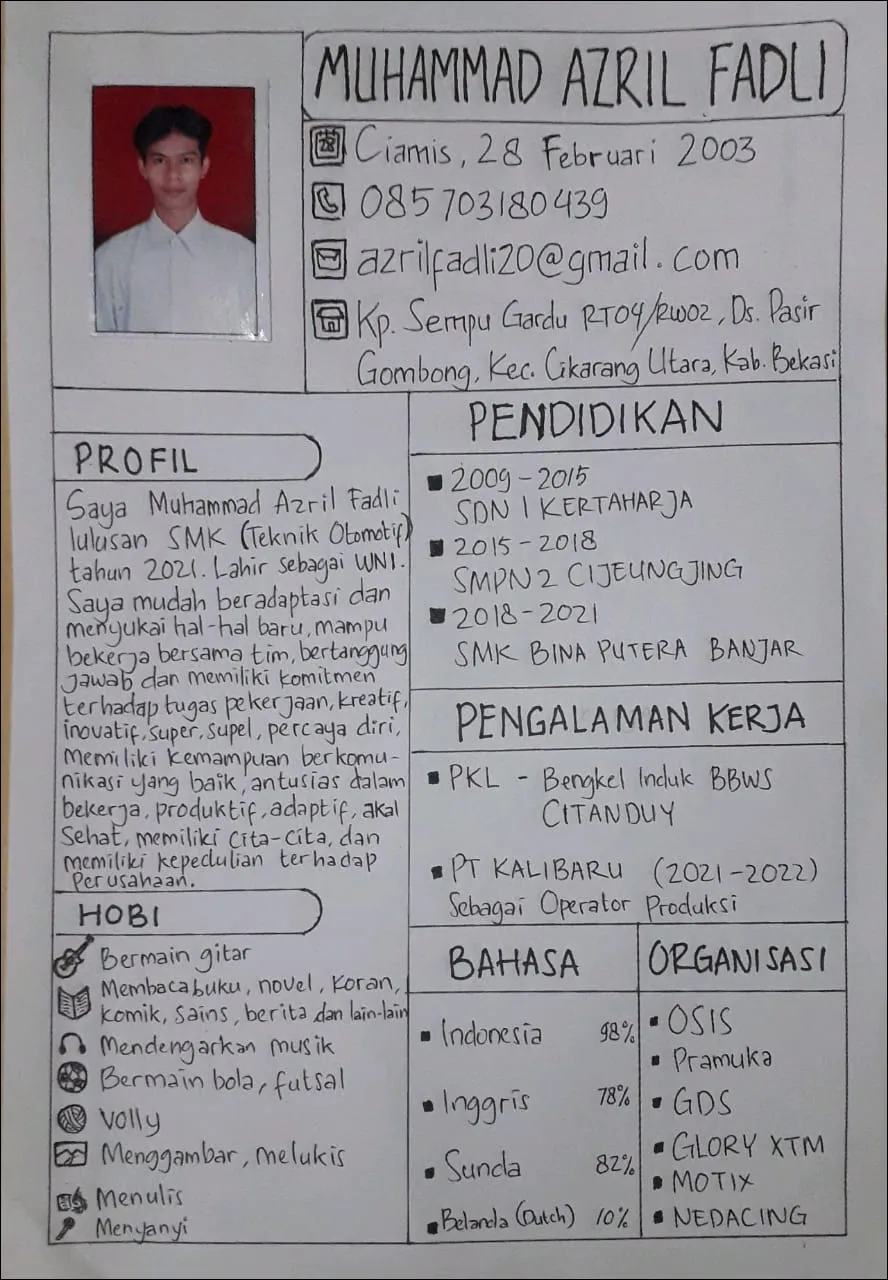 MUHAMMAD AZRIL FADLI
Ciamis, 28 Februari 2003
085703180439
azrilfadli20@gmail.com
Kp. Sempu Gardu RT04/RW02, Ds. Pasir
Gombong, Kec. Cikarang Utara, Kab. Bekasi
PROFIL
Saya Muhammad Azril Fadli
lulusan SMK (Teknik Otomotif)
tahun 2021. Lahir sebagai WNI.
Saya mudah beradaptasi dan
menyukai hal-hal baru, mampu
bekerja bersama tim, bertanggung
jawab dan memiliki komitmen
terhadap tugas pekerjaan, kreatif,
inovatif, super, supel, percaya diri,
memiliki kemampuan berkomu-
nikasi yang baik, antusias dalam
bekerja, produktif, adaptif, akal
sehat, memiliki cita-cita, dan
memiliki kepedulian terhadap
Perusahaan.
HOBI
Bermain gitar
Membaca buku, novel, koran,
komik, sains, berita dan lain-lain
Mendengarkan musik
Bermain bola, futsal
Volly
Menggambar, melukis
Menulis
Menyanyi
PENDIDIKAN
2009 - 2015
SDN 1 KERTAHARJA
2015 - 2018
SMPN 2 CIJEUNGJING
2018 - 2021
SMK BINA PUTERA BANJAR
PENGALAMAN KERJA
PKL - Bengkel Induk BBWS
CITANDUY
PT KALIBARU (2021-2022)
Sebagai Operator Produksi
BAHASA
Indonesia 98%
Inggris 78%
Sunda 82%
Belanda (Dutch) 10%
ORGANISASI
OSIS
Pramuka
GDS
GLORY XTM
MOTIX
NEDACING